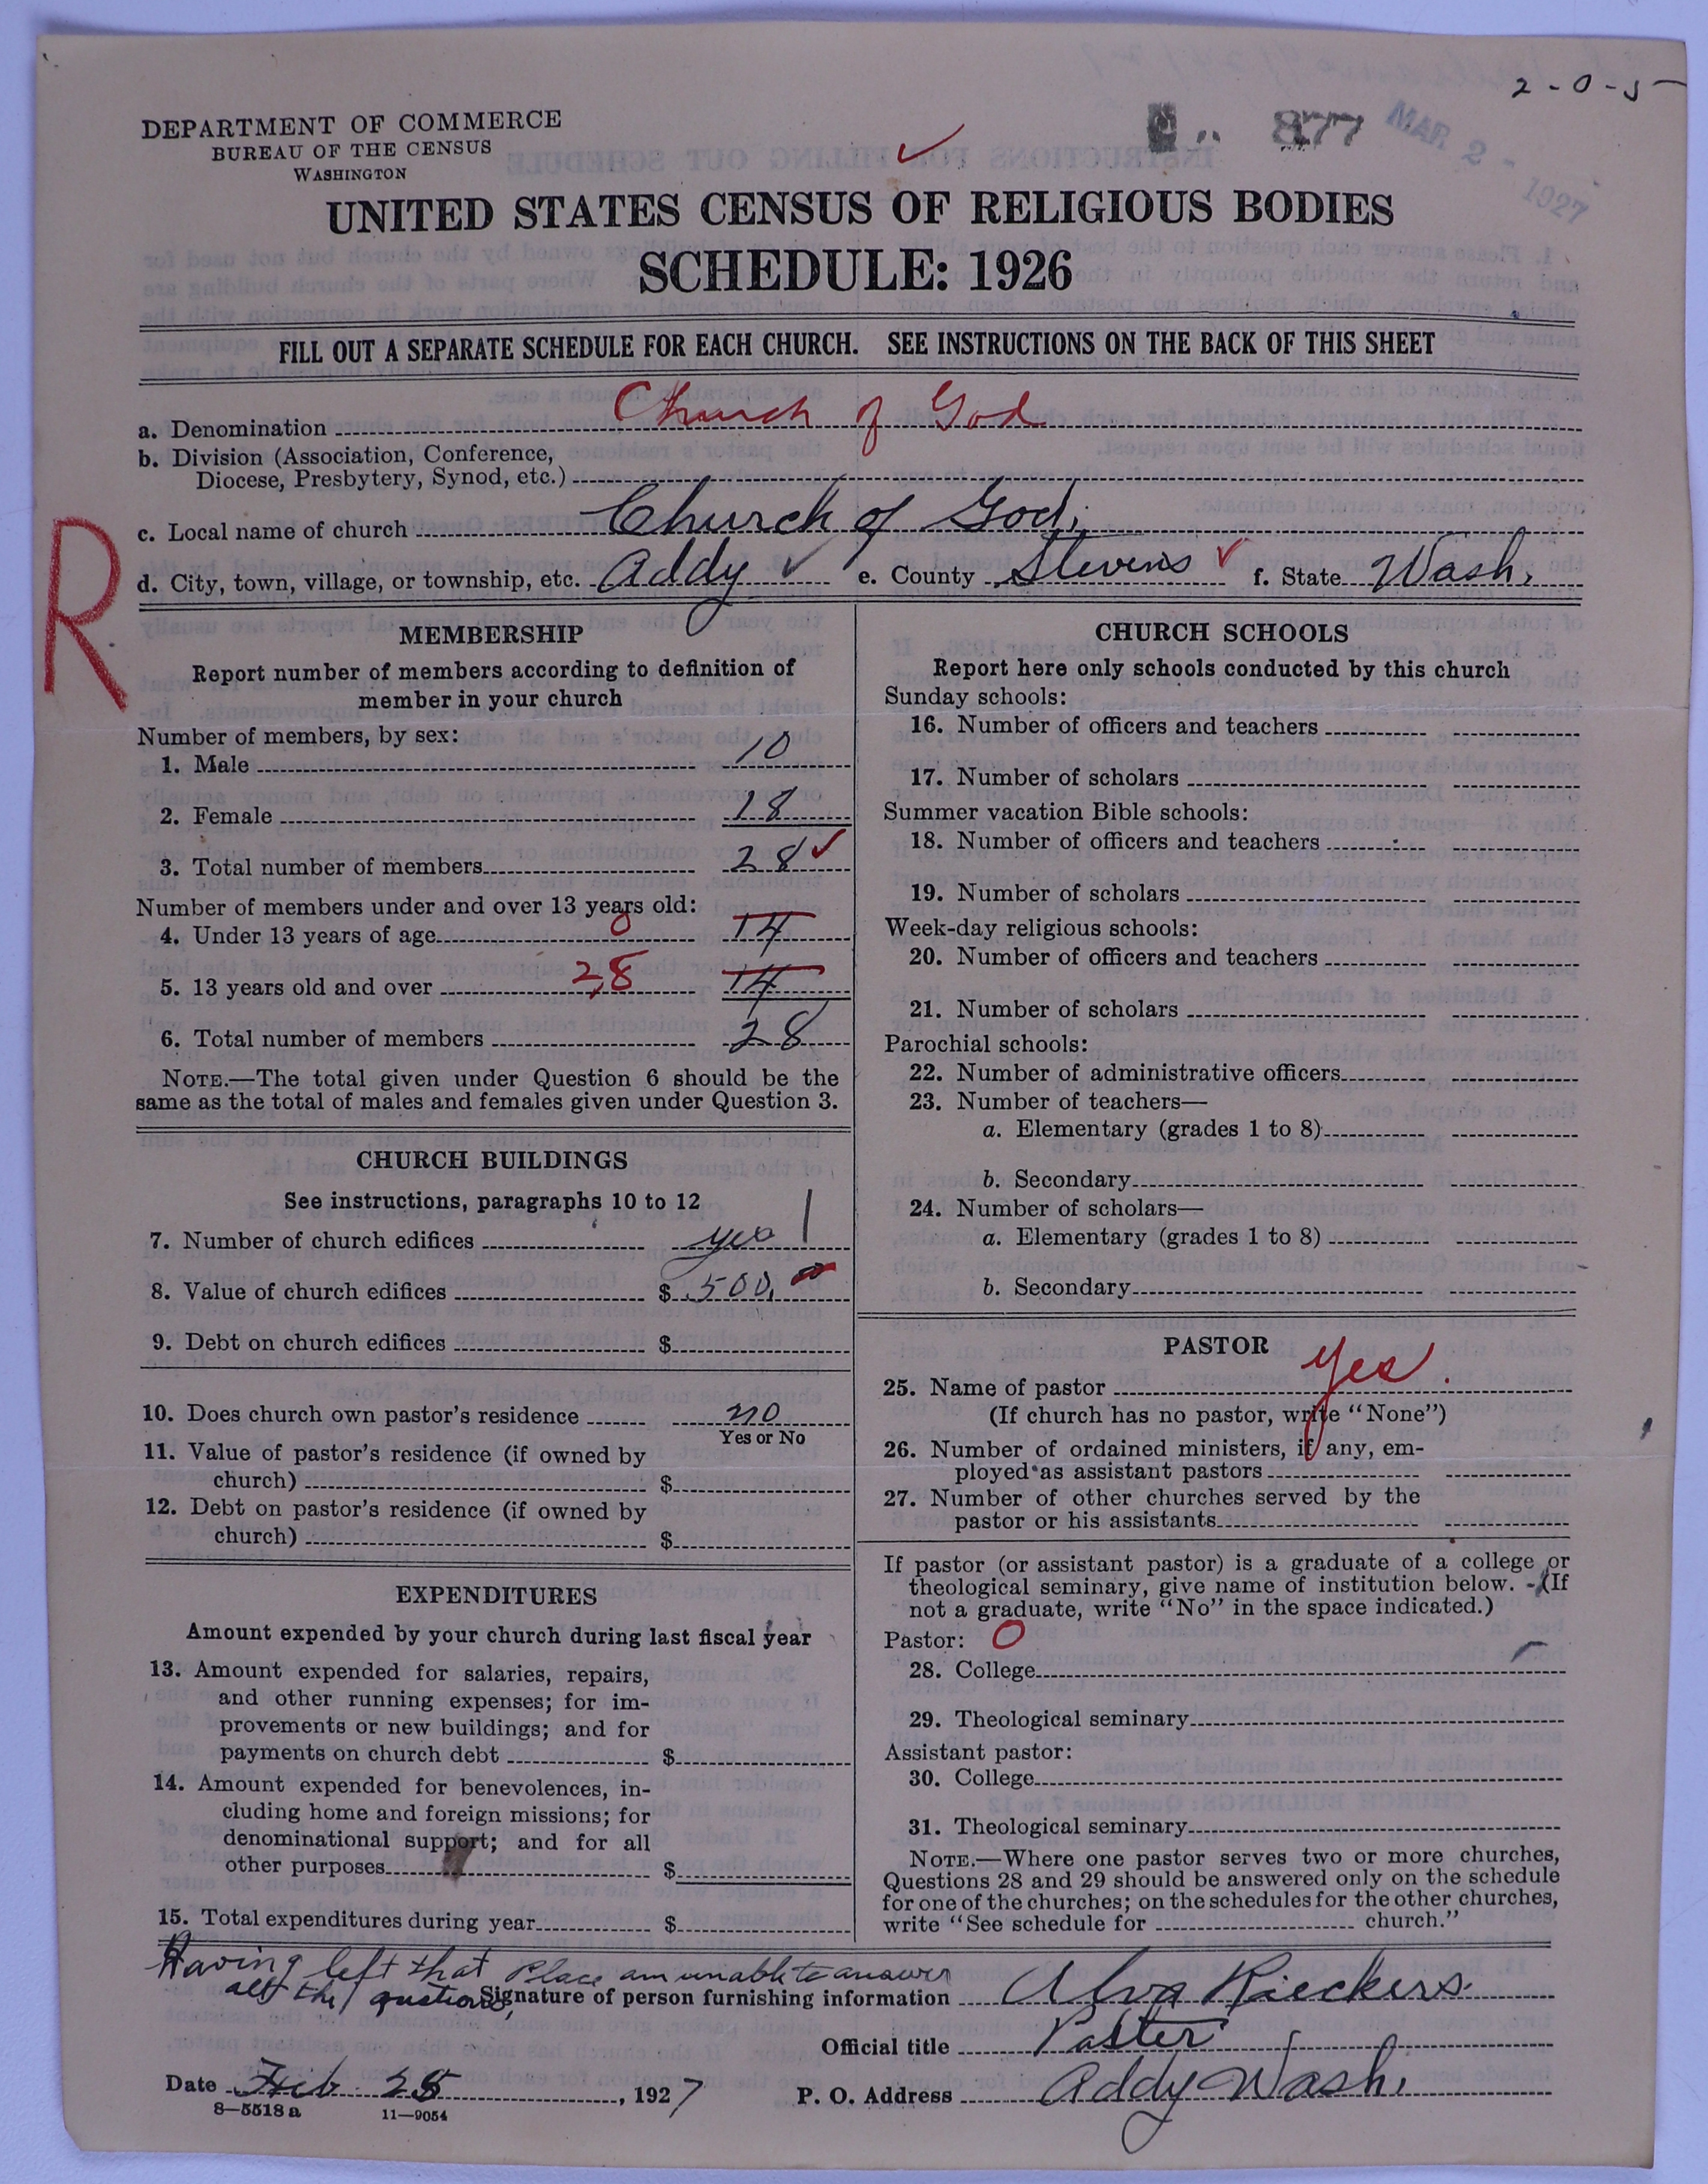 2-0-5
DEPARTMENT OF COMMERCE
BUREAU OF THE CENSUS
WASHINGTON
877
MAR 2 - 1927
UNITED STATES CENSUS OF RELIGIOUS BODIES
SCHEDULE: 1926
FILL OUT A SEPARATE SCHEDULE FOR EACH CHURCH. SEE INSTRUCTIONS ON THE BACK OF THIS SHEET
a. Denomination Church of God
b. Division (Association, Conference,
Diocese, Presbytery, Synod, etc.)
c. Local name of church Church of God.
d. City, town, village, or township, etc. Addy e. County Stevens f. State Wash.
R
MEMBERSHIP
Report number of members according to definition of
member in your church
Number of members, by sex:
1. Male 10
2. Female 18
3. Total number of members 28
Number of members under and over 13 years old:
4. Under 13 years of age 0 14
5. 13 years old and over 28 14
6. Total number of members 28
NOTE.—The total given under Question 6 should be the
same as the total of males and females given under Question 3.
CHURCH BUILDINGS
See instructions, paragraphs 10 to 12
7. Number of church edifices yes 1
8. Value of church edifices $ 500.00
9. Debt on church edifices $
10. Does church own pastor's residence no
Yes or No
11. Value of pastor's residence (if owned by
church) $
12. Debt on pastor's residence (if owned by
church) $
EXPENDITURES
Amount expended by your church during last fiscal year
13. Amount expended for salaries, repairs,
and other running expenses; for im-
provements or new buildings; and for
payments on church debt $
14. Amount expended for benevolences, in-
cluding home and foreign missions; for
denominational support; and for all
other purposes $
15. Total expenditures during year $
CHURCH SCHOOLS
Report here only schools conducted by this church
Sunday schools:
16. Number of officers and teachers
17. Number of scholars
Summer vacation Bible schools:
18. Number of officers and teachers
19. Number of scholars
Week-day religious schools:
20. Number of officers and teachers
21. Number of scholars
Parochial schools:
22. Number of administrative officers
23. Number of teachers—
a. Elementary (grades 1 to 8)
b. Secondary
24. Number of scholars—
a. Elementary (grades 1 to 8)
b. Secondary
PASTOR
25. Name of pastor Yes.
(If church has no pastor, write "None")
26. Number of ordained ministers, if any, em-
ployed as assistant pastors
27. Number of other churches served by the
pastor or his assistants
If pastor (or assistant pastor) is a graduate of a college or
theological seminary, give name of institution below. (If
not a graduate, write "No" in the space indicated.)
Pastor: 0
28. College
29. Theological seminary
Assistant pastor:
30. College
31. Theological seminary
NOTE.—Where one pastor serves two or more churches,
Questions 28 and 29 should be answered only on the schedule
for one of the churches; on the schedules for the other churches,
write "See schedule for church."
Having left that place am unable to answer
all the questions,
Signature of person furnishing information Alva Rieckers
Official title Paster
Date Feb. 25, 1927 P. O. Address Addy Wash.
8—5518 a 11—9054